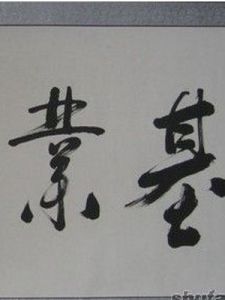 基業
shufa